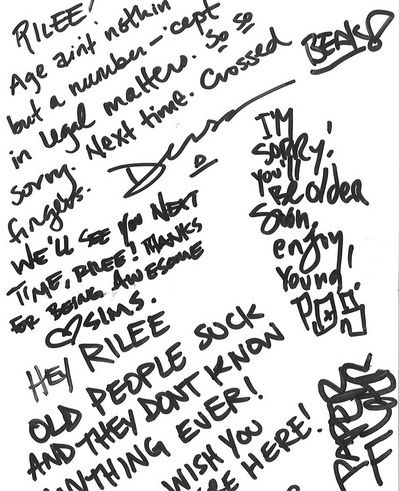 RILEE!
Age ain't nothin
but a number—'cept
in legal matters. So so
sorry. Next time. Crossed
fingers.
BEAKS
WE'LL SEE YOU NEXT
TIME, RILEE! THANKS
FOR BEING AWESOME
♡ SIMS.
I'M
SORRY!
YOU'll
BE older
Soon
enjoy
Young!
HEY RILEE
OLD PEOPLE SUCK
AND THEY DONT KNOW
ANYTHING EVER!
WISH YOU
HERE!
PAPER